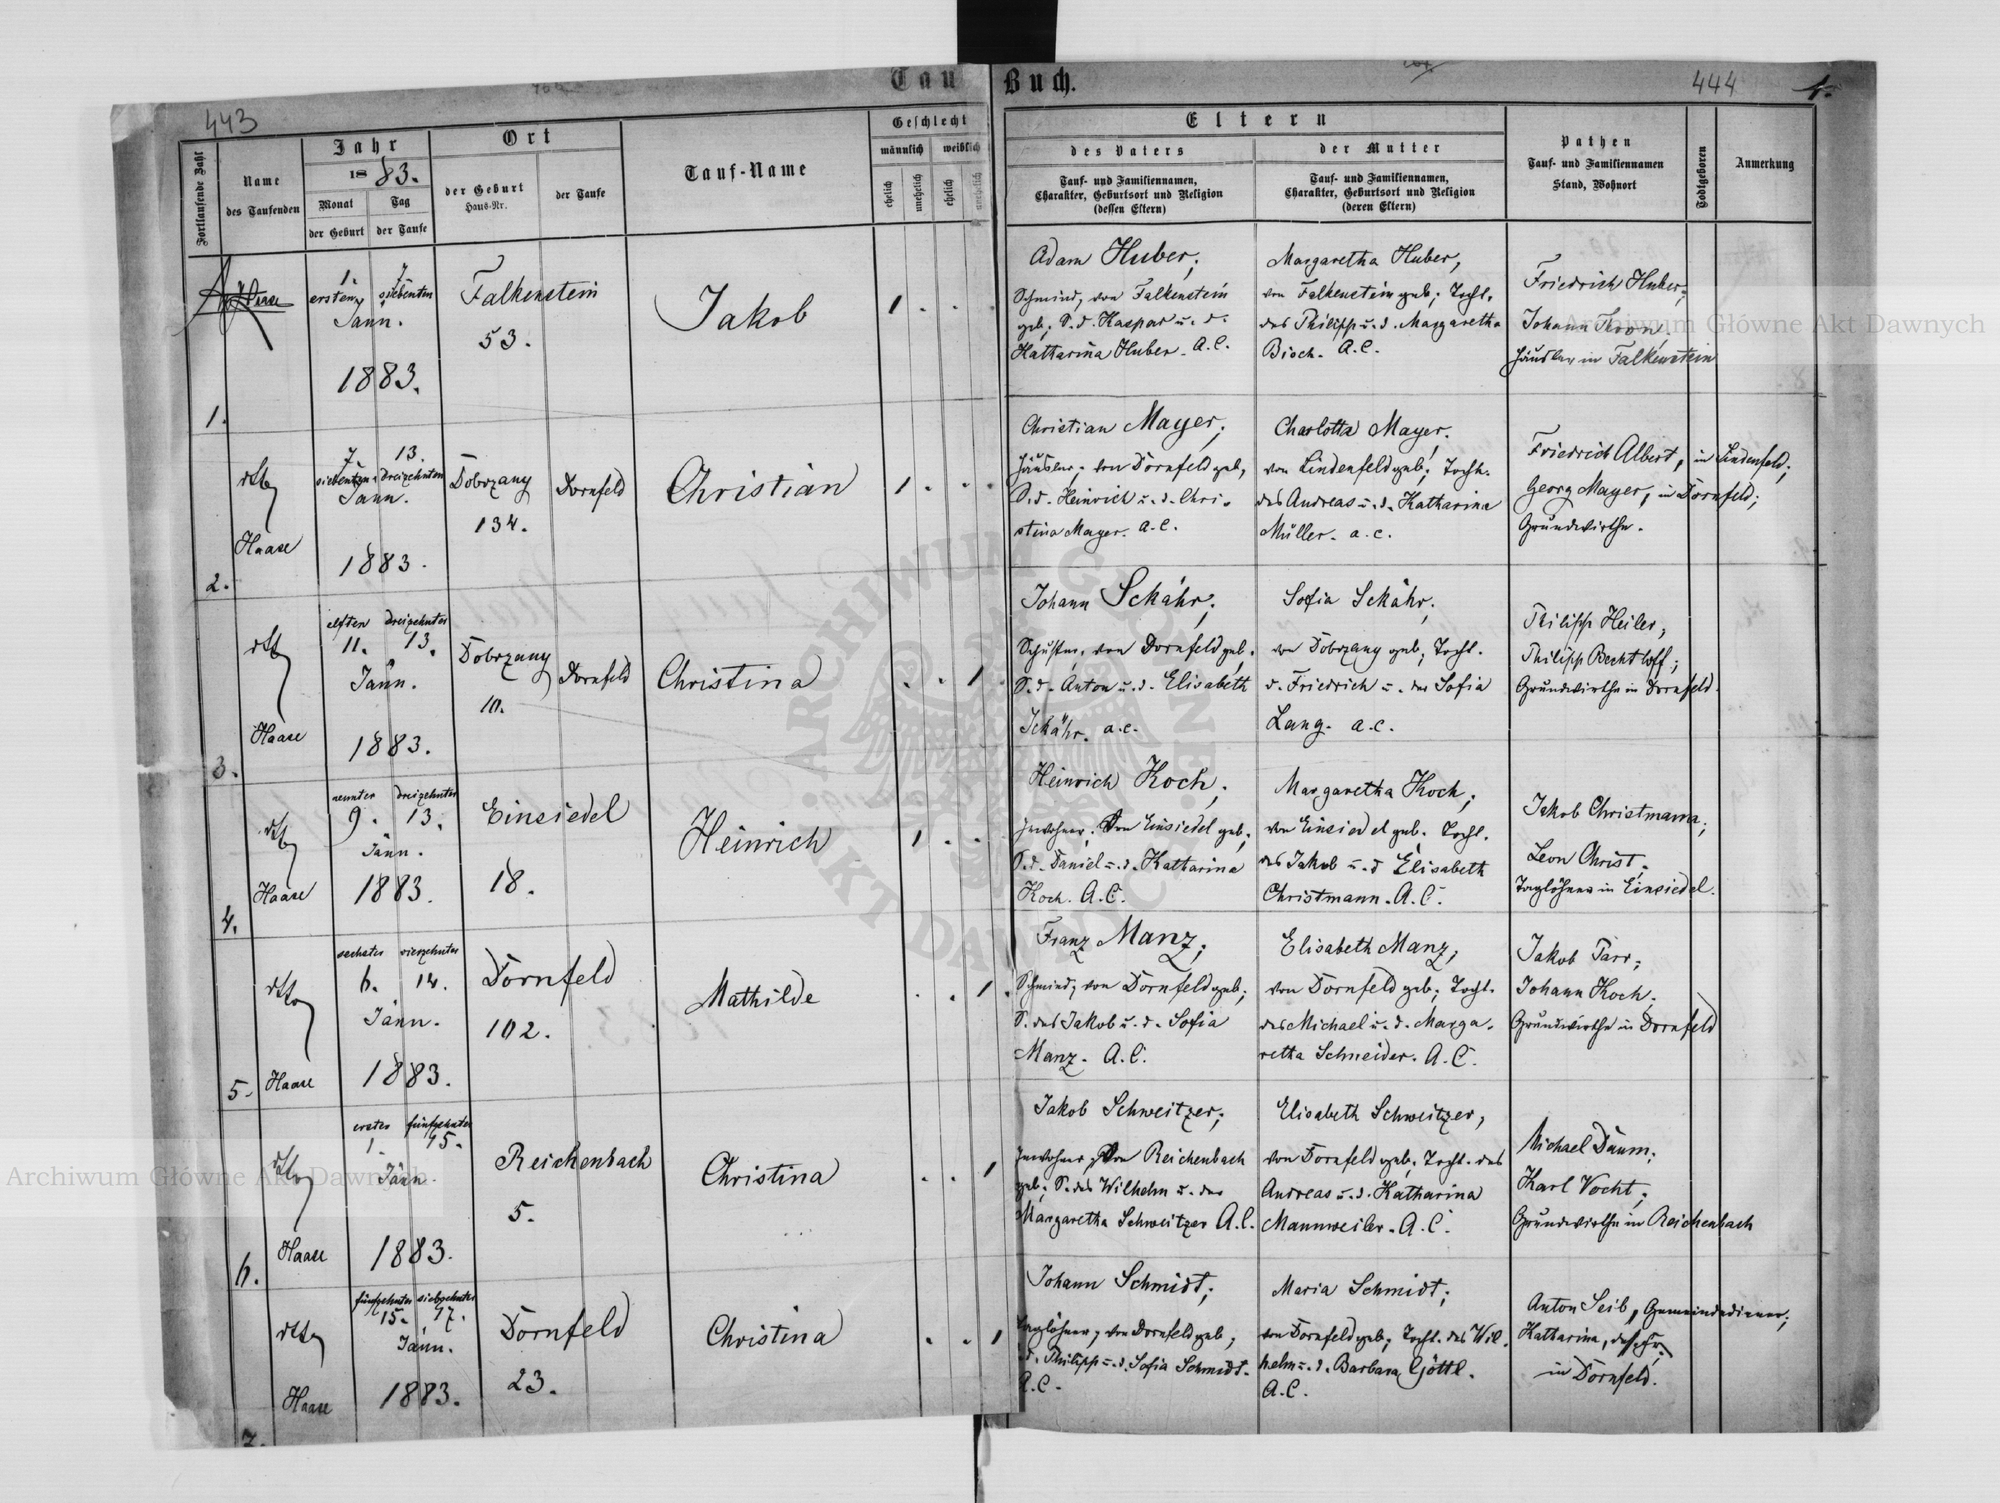 Tau Buch.
443
444
1.
Fortlaufende Zahl
Name
des Taufenden
Jahr
18 83.
Monat
Tag
der Geburt
der Taufe
Ort
der Geburt
Haus-Nr.
der Taufe
Tauf-Name
Geschlecht
männlich
weiblich
ehelich
unehelich
ehelich
unehelich
Eltern
des Vaters
Tauf- und Familiennamen,
Charakter, Geburtsort und Religion
(dessen Eltern)
der Mutter
Tauf- und Familiennamen,
Charakter, Geburtsort und Religion
(deren Eltern)
Pathen
Tauf- und Familiennamen
Stand, Wohnort
Todtgeboren
Anmerkung
1.
Haase
1. 7.
ersten siebenten
Jänn.
1883.
Falkenstein
53.
Jakob
1 . .
Adam Huber;
Schmied, von Falkenstein
geb; S. d. Kaspar u. d.
Katharina Huber. A.C.
Margaretha Huber,
von Falkenstein geb; Tocht.
des Philipp u. d. Margaretha
Bisch. A.C.
Friedrich Huber;
Johann
Häusler in Falkenstein
2.
Haase
7. 13.
siebenten dreizehnten
Jänn.
1883.
Dobrzany
134.
Dornfeld
Christian
1 . . .
Christian Mayer;
Häusler, von Dornfeld geb,
S. d. Heinrich u. d. Chri-
stina Mayer. a.c.
Charlotta Mayer;
von Lindenfeld geb; Tocht.
des Andreas u. d. Katharina
Müller. a.c.
Friedrich Albert, in Lindenfeld;
Georg Mayer, in Dornfeld;
Grundwirthe.
3.
Haase
elften dreizehnter
11. 13.
Jänn.
1883.
Dobrzany
10.
Dornfeld
Christina
. . 1
Johann Skähr;
Schuster, von Dornfeld geb.
S. d. Anton u. d. Elisabeth
Skähr. a.c.
Sofia Skähr;
von Dobrzany geb; Tocht.
d. Friedrich u. der Sofia
Lang. a.c.
Philipp Heiler;
Philipp Bechtloff;
Grundwirthe in Dornfeld.
4.
Haase
neunter dreizehnter
9. 13.
Jänn.
1883.
Einsiedel
18.
Heinrich
1 . .
Heinrich Koch;
Inwohner, von Einsiedel geb;
S. d. Daniel u. d. Katharina
Koch. A.C.
Margaretha Koch;
von Einsiedel geb. Tocht.
des Jakob u. d Elisabeth
Christmann. A.C.
Jakob Christmann;
Leon Christ;
Taglöhner in Einsiedel.
5.
Haase
sechster vierzehnter
6. 14.
Jänn.
1883.
Dornfeld
102.
Mathilde
. . 1.
Franz Manz;
Schmied, von Dornfeld geb;
S. des Jakob u. d. Sofia
Manz. A.C.
Elisabeth Manz;
von Dornfeld geb; Tocht.
des Michael u. d. Marga-
retha Schneider. A.C.
Jakob Parr;
Johann Koch;
Grundwirthe in Dornfeld
6.
Haase
erster fünfzehnter
1. 15.
Jänn.
1883.
Reichenbach
5.
Christina
. . 1
Jakob Schweitzer;
Inwohner, von Reichenbach
geb; S. des Wilhelm u. der
Margaretha Schweitzer A.C.
Elisabeth Schweitzer,
von Dornfeld geb; Tocht. des
Andreas u. d. Katharina
Mannweiler. A.C.
Michael Daum;
Karl Vocht;
Grundwirthe in Reichenbach
7.
Haase
fünfzehnter siebzehnter
15. 17.
Jänn.
1883.
Dornfeld
23.
Christina
. . 1
Johann Schmidt;
Taglöhner, von Dornfeld geb,
d. Philipp u. d. Sofia Schmidt.
A.C.
Maria Schmidt;
von Dornfeld geb; Tocht. des Wil-
helm u. d. Barbara Göttl.
A.C.
Anton Seib, Gemeindediener;
Katharina,
in Dornfeld.
Archiwum Główne Akt Dawnych
Archiwum Główne Akt Dawnych
ARCHIWUM GŁÓWNE AKT DAWNYCH